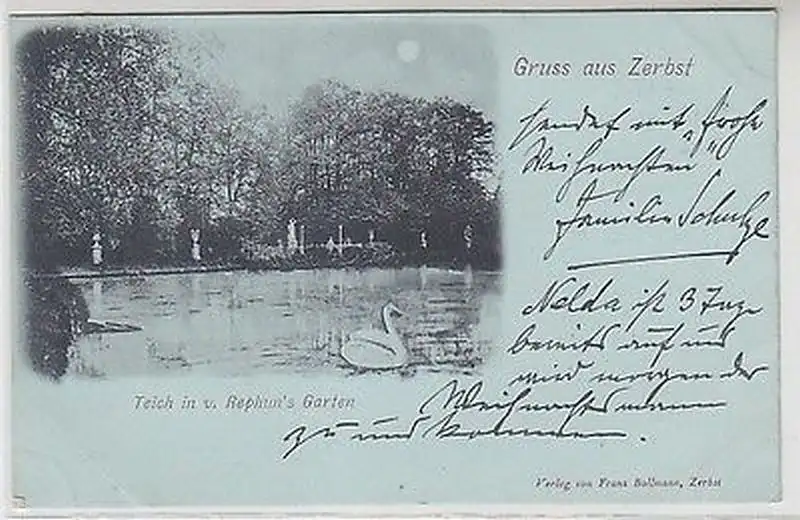 Gruss aus Zerbst
sendet mit „frohe
Weihnachten"
Familie Schulze
Nelda ist 3 Tage
bereits auf und
wird morgen der
Weihnachtsmann
zu uns kommen.
Teich in v. Rephun's Garten
Verlag von Franz Bollmann, Zerbst